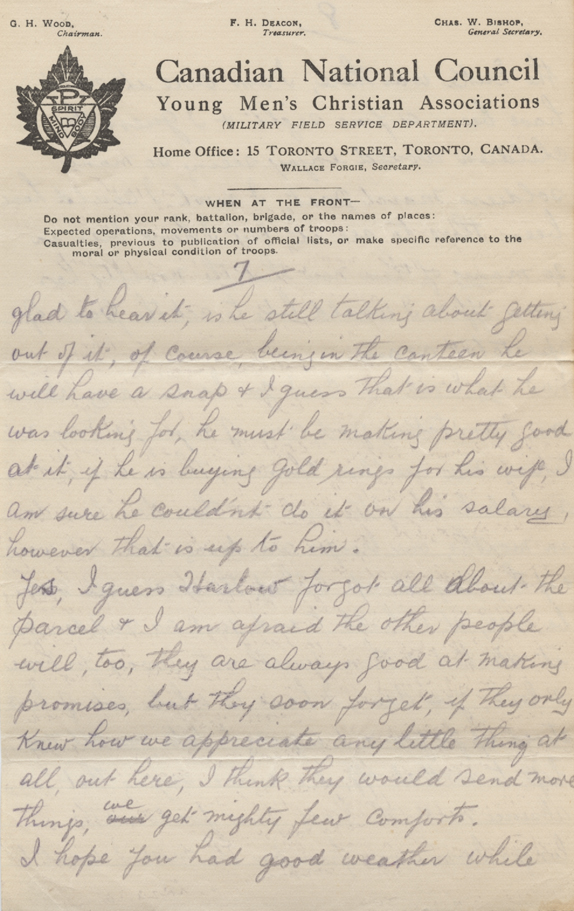 G. H. WOOD, F. H. DEACON, CHAS. W. BISHOP,
Chairman. Treasurer. General Secretary.
SPIRIT
MIND BODY
Canadian National Council
Young Men's Christian Associations
(MILITARY FIELD SERVICE DEPARTMENT).
Home Office: 15 TORONTO STREET, TORONTO, CANADA.
WALLACE FORGIE, Secretary.
WHEN AT THE FRONT—
Do not mention your rank, battalion, brigade, or the names of places:
Expected operations, movements or numbers of troops:
Casualties, previous to publication of official lists, or make specific reference to the
moral or physical condition of troops.
7
glad to hear it, is he still talking about getting
out of it, of course, being in the canteen he
will have a snap & I guess that is what he
was looking for, he must be making pretty good
at it, if he is buying gold rings for his wife, I
am sure he could'nt do it on his salary,
however that is up to him.
Yes, I guess Harlow forgot all about the
parcel & I am afraid the other people
will, too, they are always good at making
promises, but they soon forget, if they only
knew how we appreciate any little thing at
all, out here, I think they would send more
things, we get mighty few comforts.
I hope you had good weather while